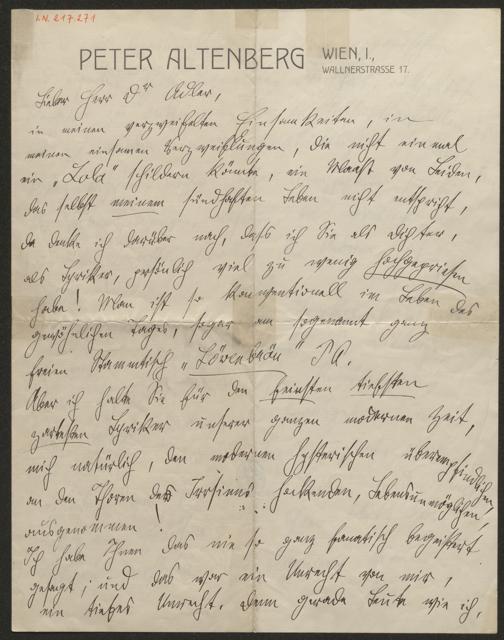 I.N. 217.271
PETER ALTENBERG WIEN, I.,
WALLNERSTRASSE 17.
Lieber Herr Dr Adler,
in meinen verzweifelten Einsamkeiten, in
meinen einsamen Verzweiflungen, die nicht einmal
ein „Zola" schildern könnte, ein Maass von Leiden,
das selbst meinem sündhaften Leben nicht entspricht,
da denke ich darüber nach, dass ich Sie als Dichter,
als Lyriker, persönlich viel zu wenig hochgepriesen
habe! Man ist so konventionell im Leben des
gewöhnlichen Tages, sogar am sogenannt ganz
freien Stammtisch „Löwenbräu" P.A.
Aber ich halte Sie für den feinsten tiefsten
zartesten Lyriker unserer ganzen modernen Zeit,
mich natürlich, den modernen hysterischen überempfindlichen,
an den Thoren des Irrsinns hockenden, Lebensunmöglichen,
ausgenommen!
Ich habe Ihnen das nie so ganz fanatisch begeistert
gesagt, und das war ein Unrecht von mir,
ein tiefes Unrecht. Denn gerade Leute wie ich,